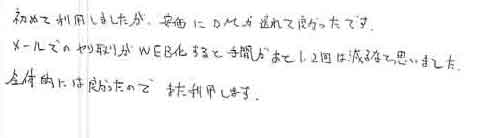 初めて利用しましたが、安価にDMが送れて良かったです。
メールでのやり取りがWEB化すると手間があと1、2回は減るなと思いました。
全体的には良かったので また利用します。